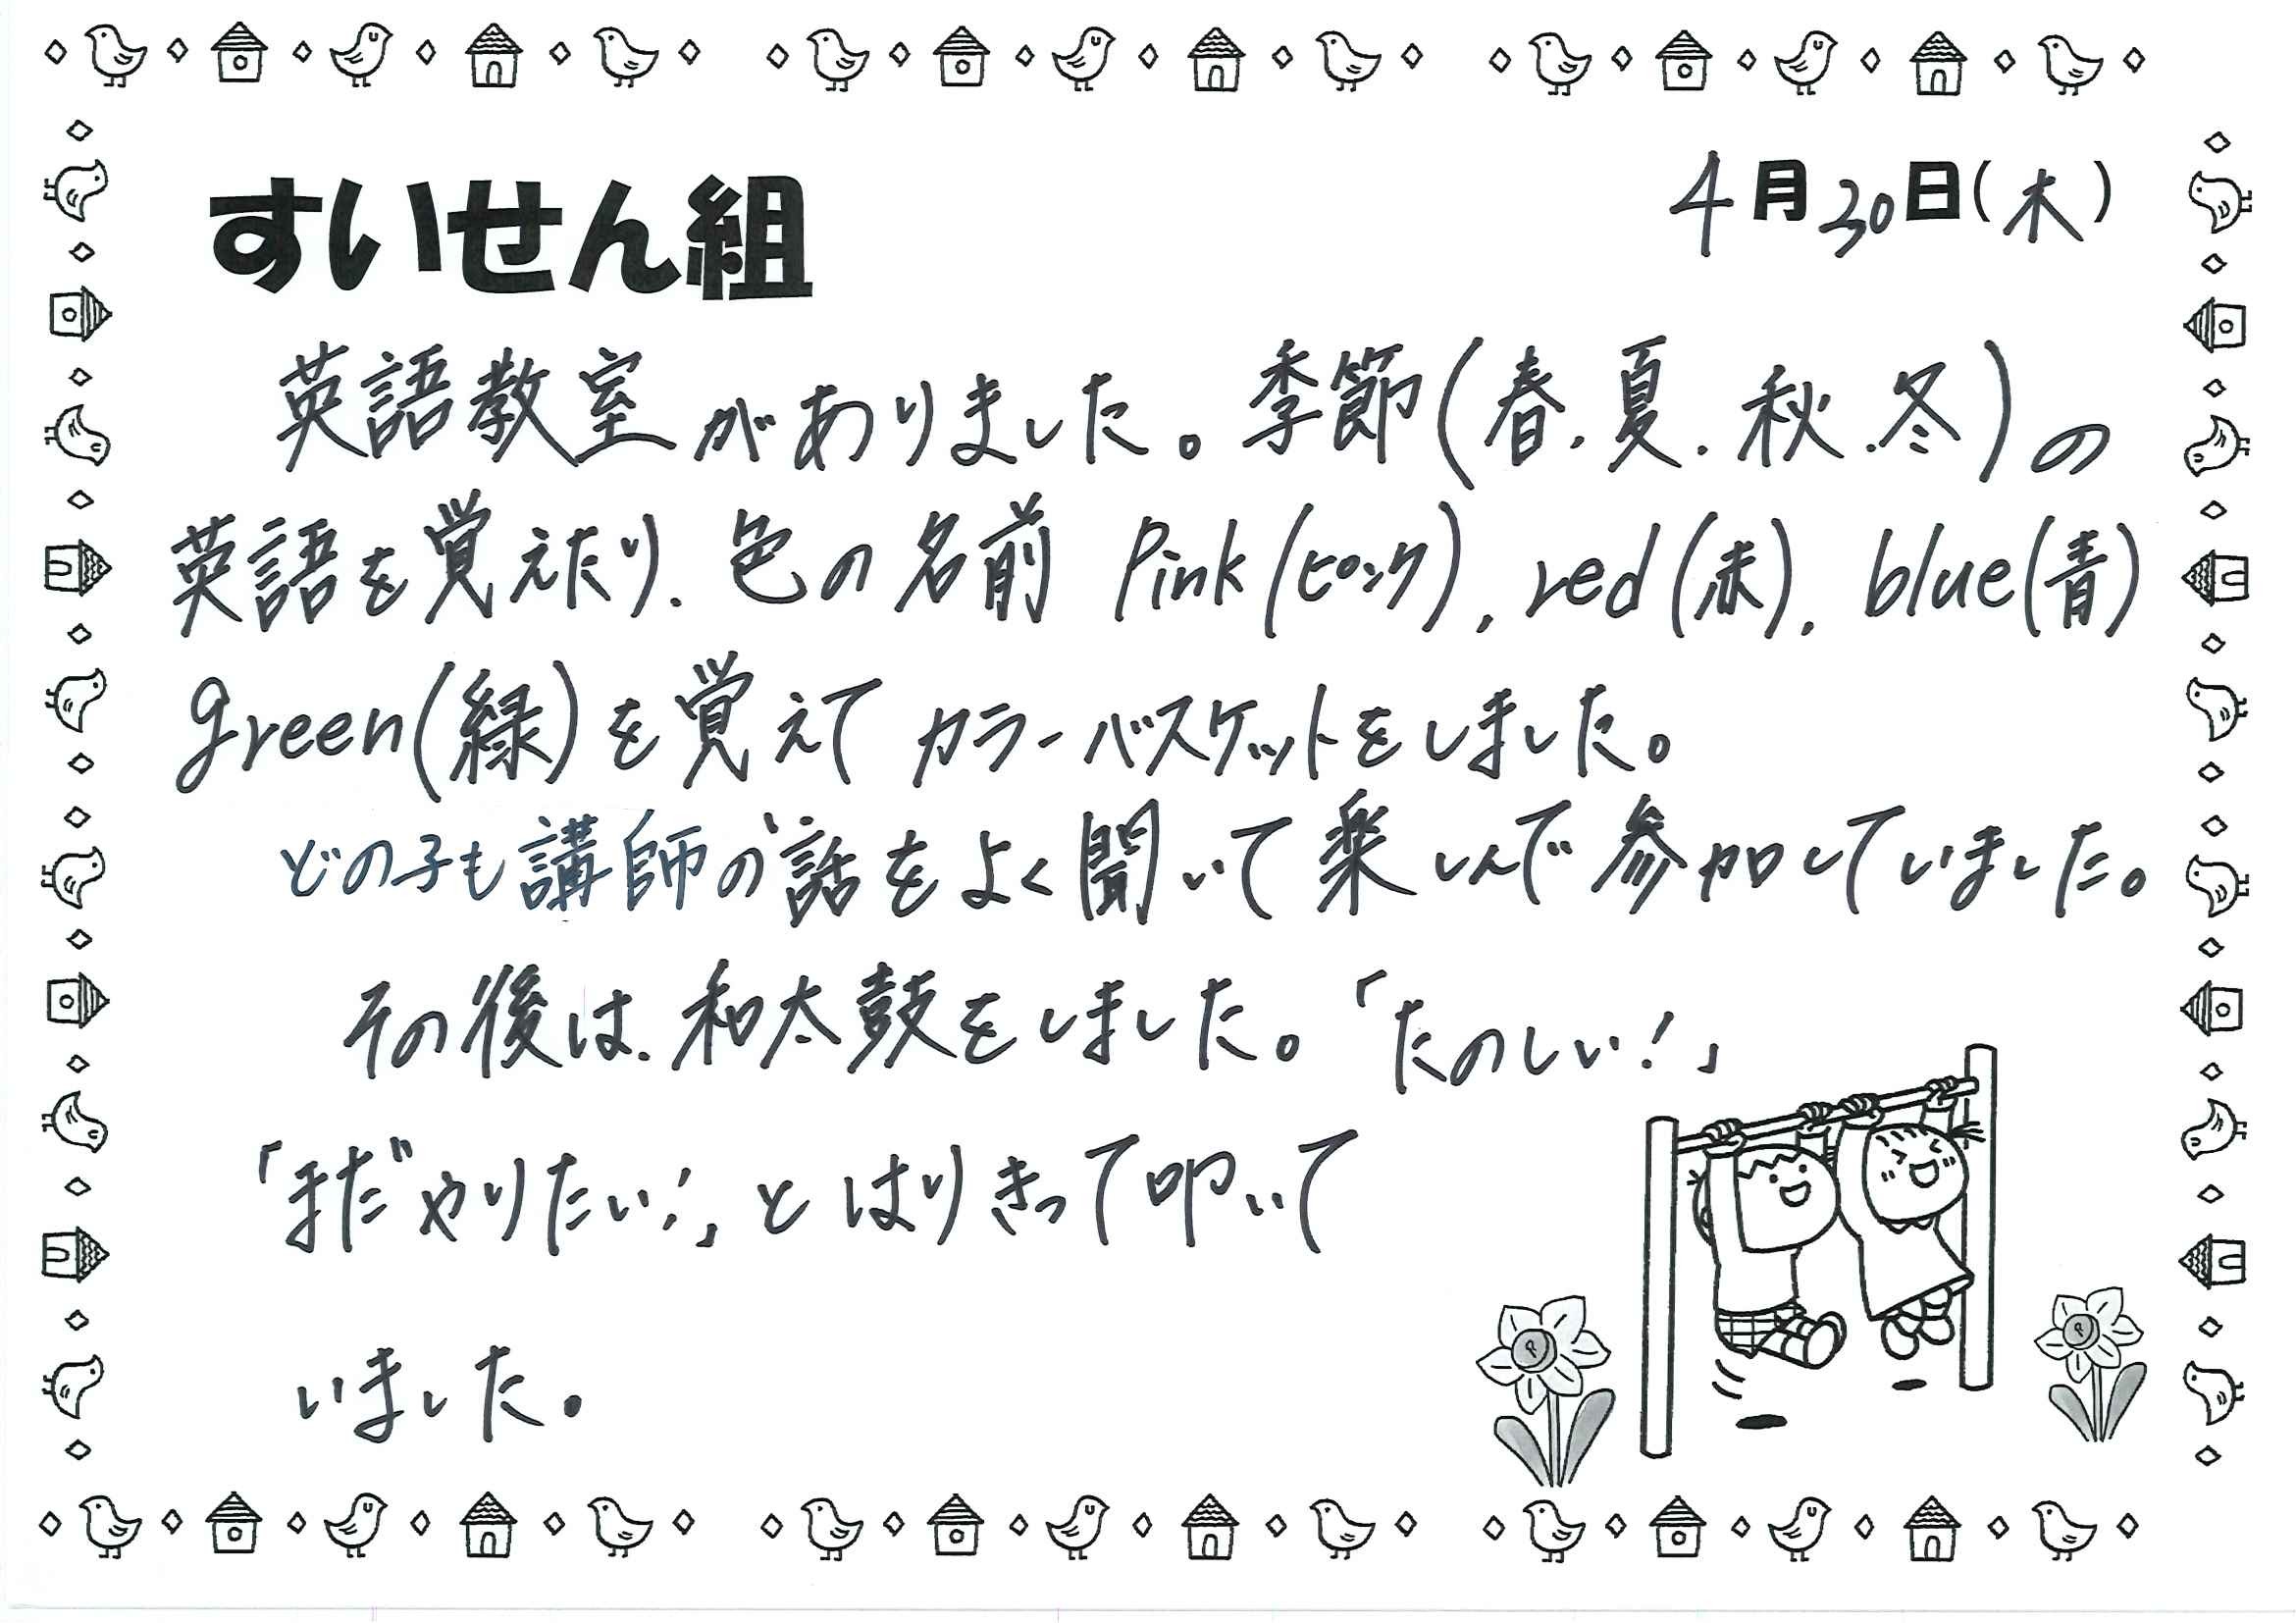 すいせん組
4月30日(木)
英語教室がありました。季節(春.夏.秋.冬)の
英語を覚えたり、色の名前 Pink(ピンク), red(赤), blue(青)
green(緑)を覚えてカラーバスケットをしました。
どの子も講師の話をよく聞いて楽しんで参加していました。
その後は、和太鼓をしました。「たのしい!」
「まだやりたい!」とはりきって叩いて
いました。